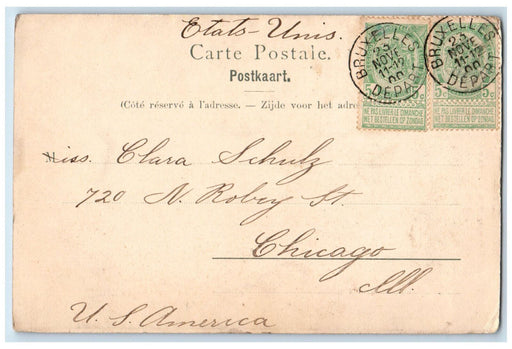 Etats-Unis.
Carte Postale.
Postkaart.
(Côté réservé à l'adresse. — Zijde voor het adre
BRUXELLES
23
NOVE
11-12
00
DEPART
BRUXELLES
23
NOVE
11-12
00
DEPART
5c 5c
NE PAS LIVRER LE DIMANCHE
NIET BESTELLEN OP ZONDAG
NE PAS LIVRER LE DIMANCHE
NIET BESTELLEN OP ZONDAG
Miss. Clara Schulz
720 N. Robey St.
Chicago
Ill.
U. S. America